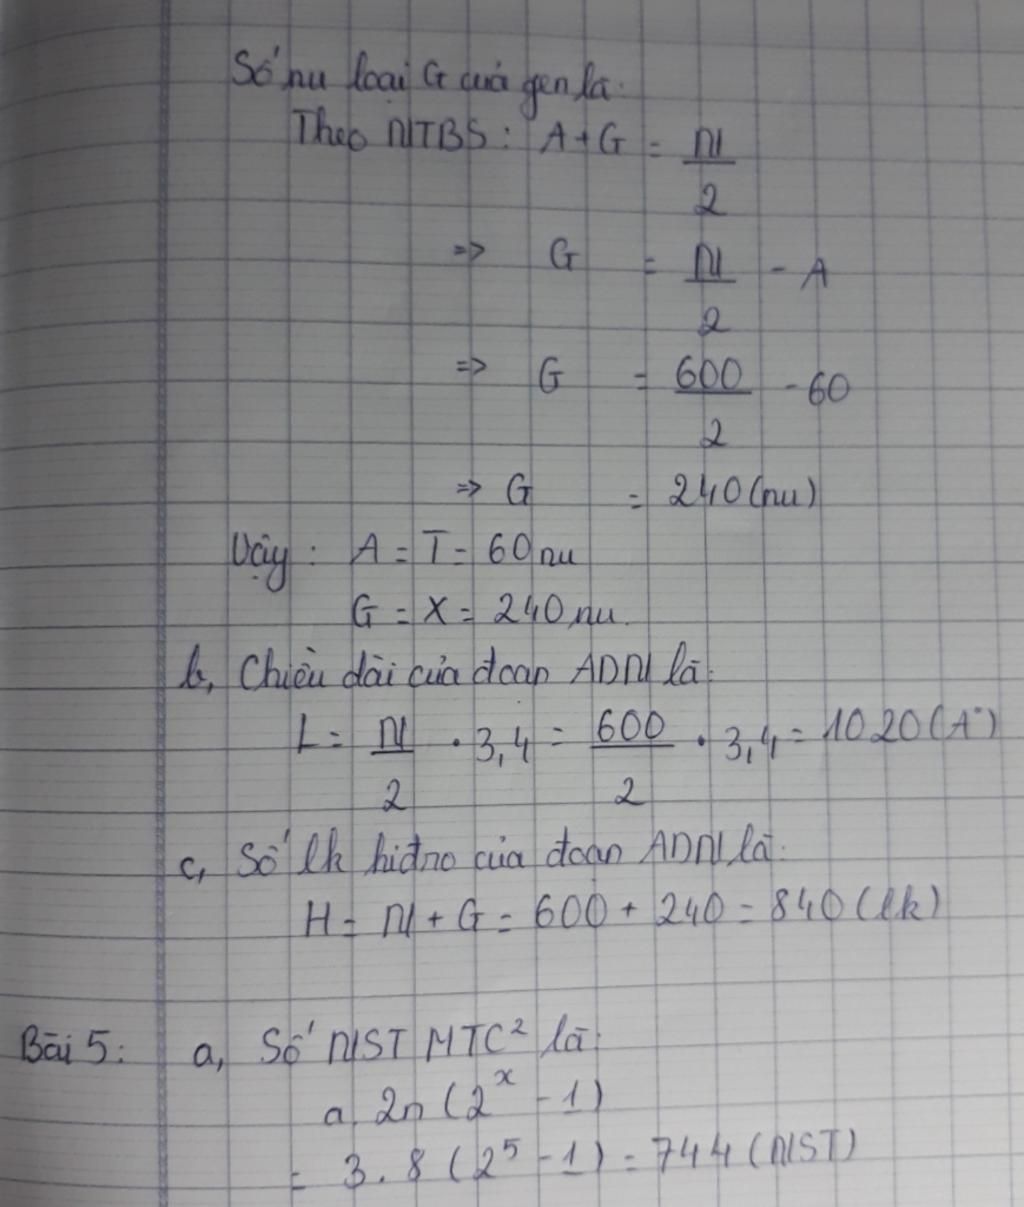 Số nu loại G của gen là:
Theo NTBS: A+G = N/2
=> G = N/2 - A
=> G = 600/2 - 60
=> G = 240 (nu)
Vậy: A = T = 60 nu
G = X = 240 nu.
b, Chiều dài của đoạn ADN là:
L = N/2 . 3,4 = 600/2 . 3,4 = 1020 (A°)
c, Số lk hiđro của đoạn ADN là:
H = N + G = 600 + 240 = 840 (lk)
Bài 5: a, Số NST MTC² là:
a. 2n (2^x - 1)
= 3 . 8 (2^5 - 1) = 744 (NST)